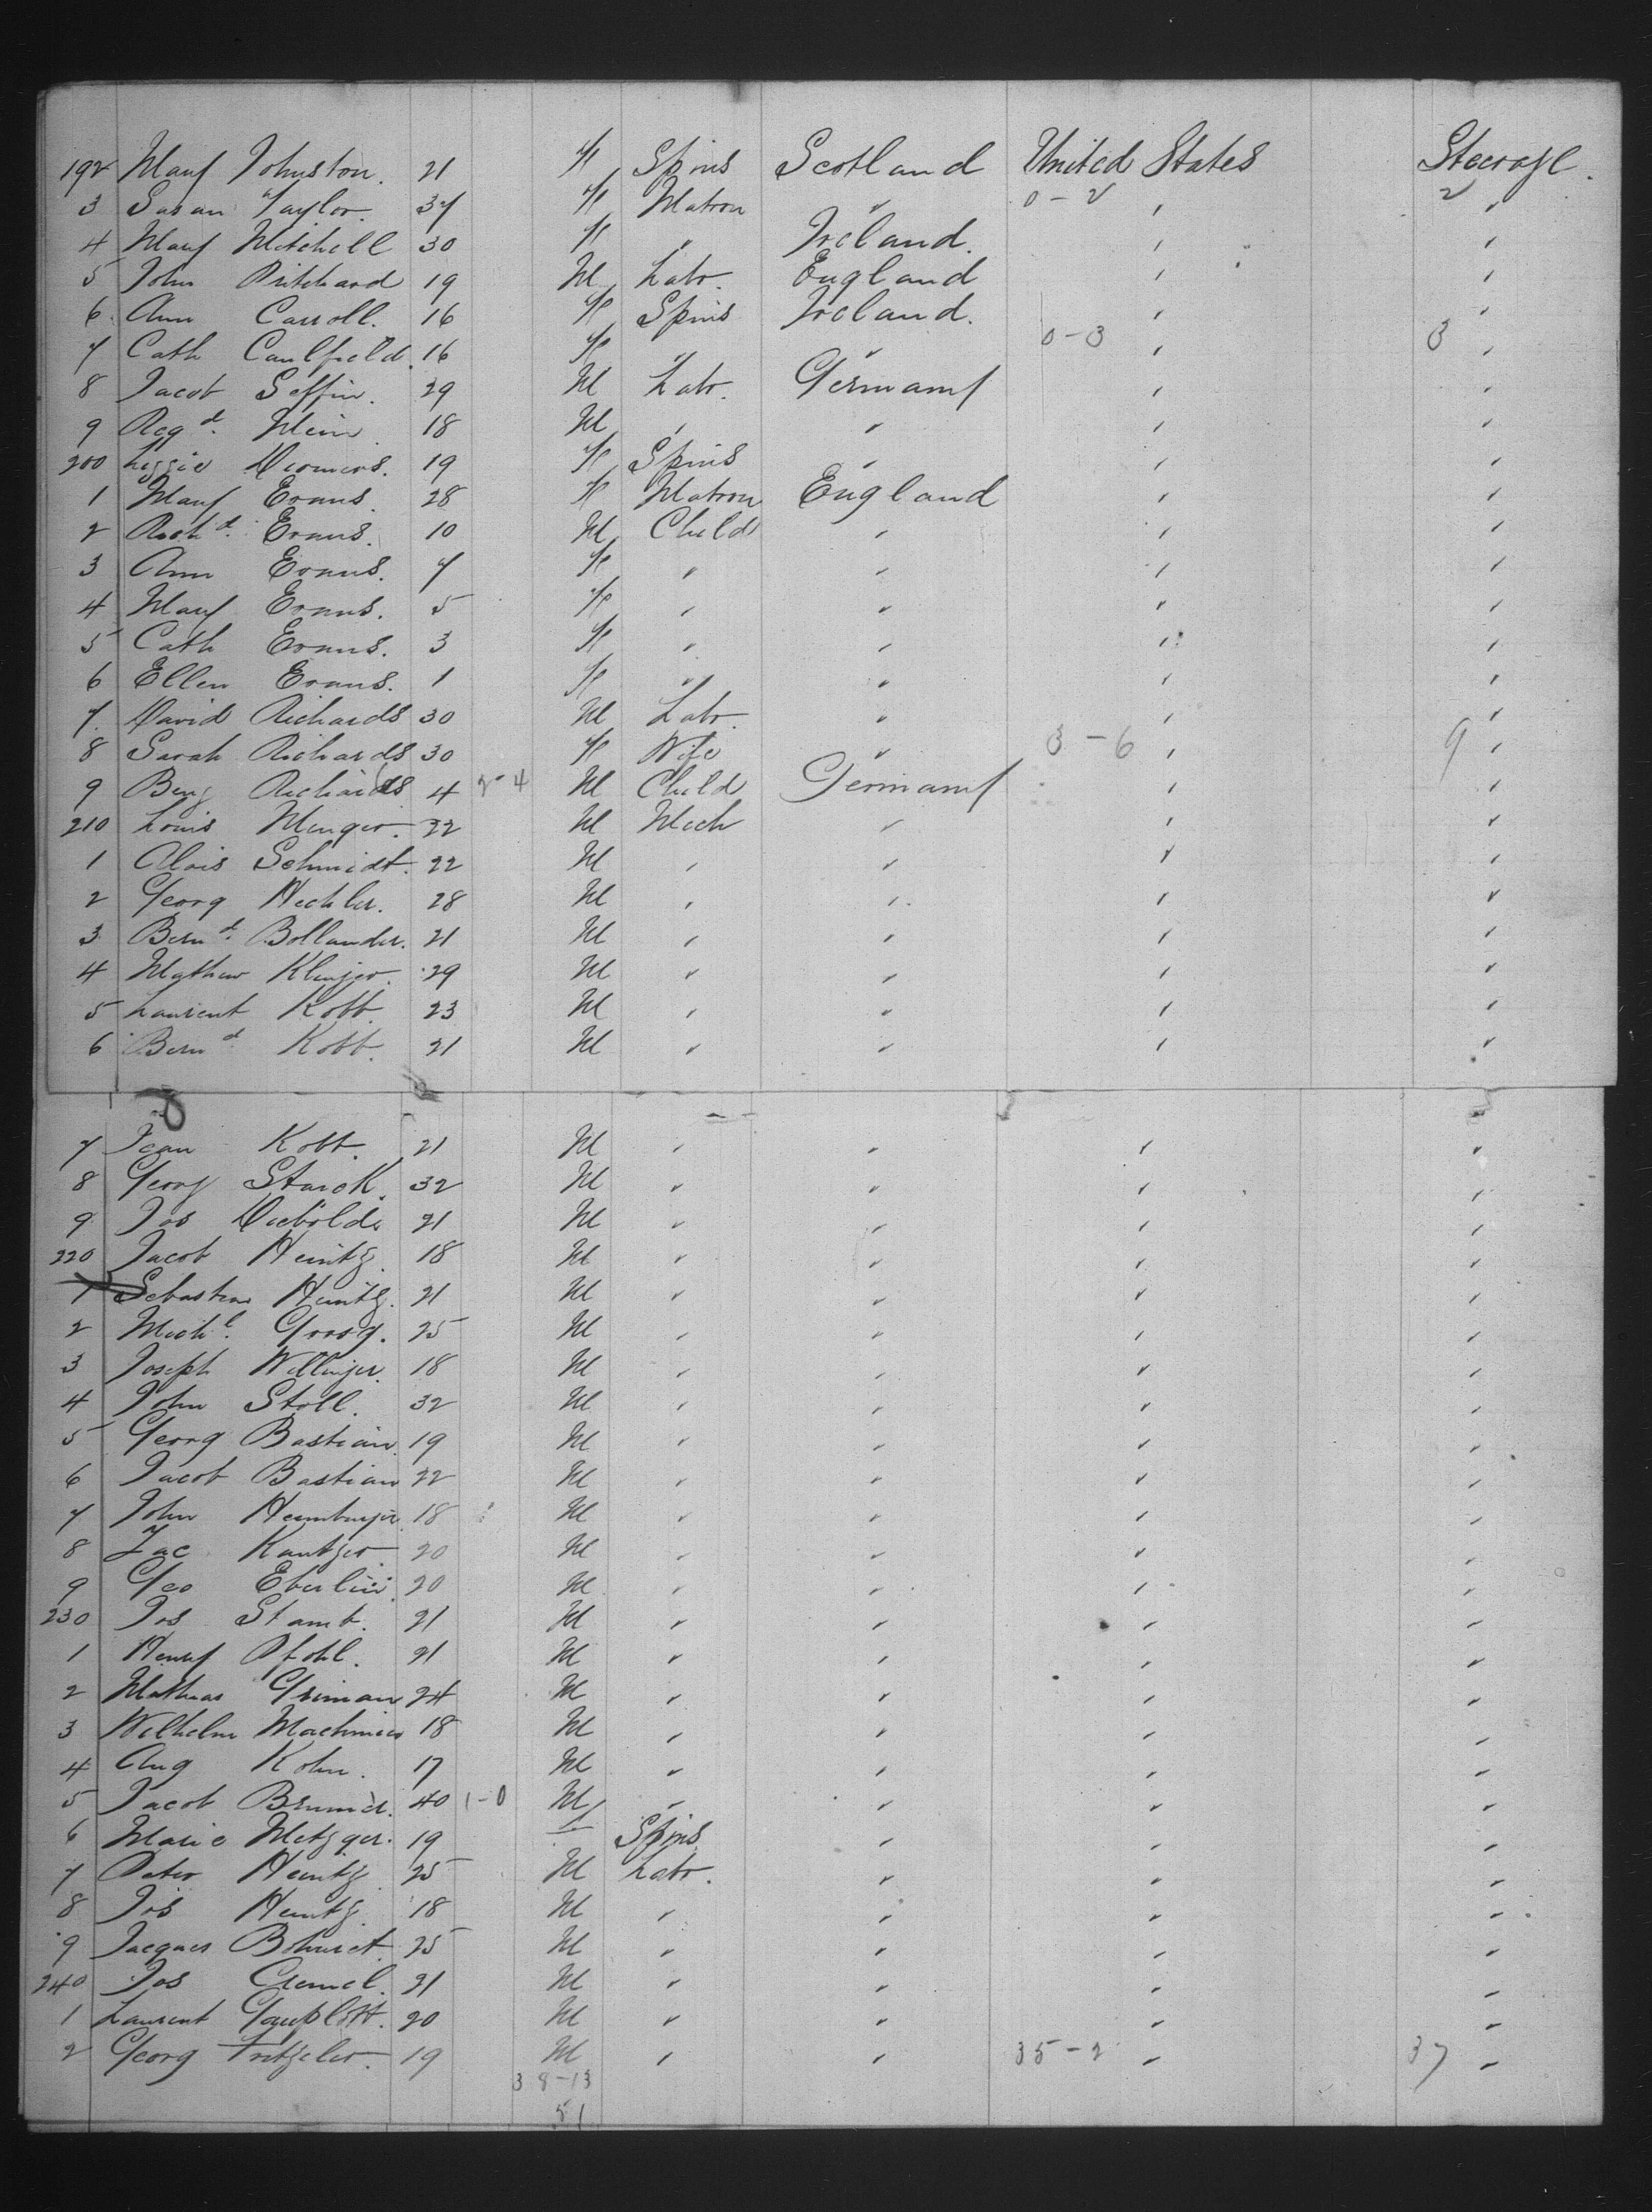 192 Mary Johnston. 21 F Spins Scotland United States Steerage.
3 Susan Taylor. 37 F Matron " 0-2 " 2 "
4 Mary Mitchell 30 F " Ireland. " "
5 John Pritchard 19 M Labr. England " "
6 Ann Carroll. 16 F Spins Ireland. " "
7 Cath Caulfield. 16 F " " 0-3 " 3 "
8 Jacob Seffin. 29 M Labr. Germany " "
9 Regd. Klein 18 M " " " "
200 Lizzie 19 F Spins " " "
1 Mary Evans. 28 F Matron England " "
2 Richd. Evans. 10 M Child " " "
3 Ann Evans. 7 F " " " "
4 Mary Evans. 5 F " " " "
5 Cath Evans. 3 F " " " "
6 Ellen Evans. 1 F " " " "
7 David Richards 30 M Labr. " " "
8 Sarah Richards 30 F Wife " 3-6 " 9 "
9 Benj Richards 4 2-4 M Child Germany " "
210 Louis Menger. 22 M Mech " " "
1 Alois Schmidt. 22 M " " " "
2 Georg Hechler. 28 M " " " "
3 Bernd. Bollander. 21 M " " " "
4 Mathew Klinger. 29 M " " " "
5 Laurent Kobb. 23 M " " " "
6 Bernd. Kobb. 21 M " " " "
7 Jean Kobb. 21 M " " " "
8 Georg Starck. 32 M " " " "
9 Jos Diebolds 21 M " " " "
220 Jacob Heintz. 18 M " " " "
1 Sebastian Heintz. 21 M " " " "
2 Michl. 25 M " " " "
3 Joseph Willinger. 18 M " " " "
4 John Stoll. 32 M " " " "
5 Georg Bastian. 19 M " " " "
6 Jacob Bastian 22 M " " " "
7 John Hamburger 18 M " " " "
8 Zac Kantzer 20 M " " " "
9 Geo Eberlin. 20 M " " " "
230 Jos Stamb. 21 M " " " "
1 Henry Pfohl. 21 M " " " "
2 Mathias Griman 24 M " " " "
3 Wilhelm 18 M " " " "
4 Aug Kohn. 17 M " " " "
5 Jacob Brunner. 40 1-0 M " " " "
6 Marie Metzger. 19 F Spins " " "
7 Peter Heintz. 25 M Labr. " " "
8 Jos Heintz. 18 M " " " "
9 Jacques 25 M " " " "
240 Jos 21 M " " " "
1 Laurent 20 M " " " "
2 Georg Fritzeler. 19 M " " 35-2 " 37 "
38-13
51